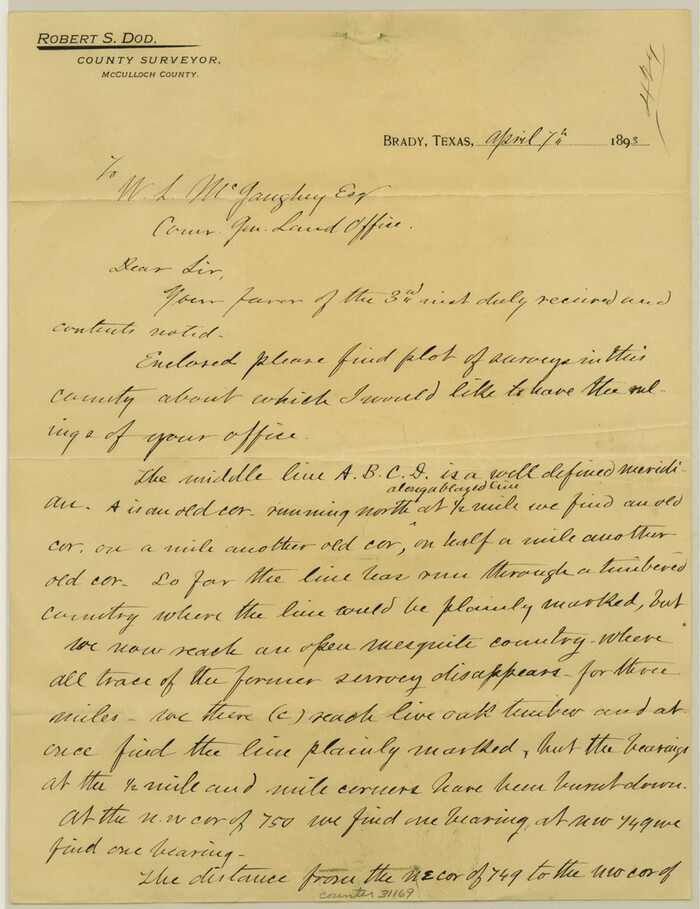 ROBERT S. DOD.
COUNTY SURVEYOR,
MCCULLOCH COUNTY.
424
BRADY, TEXAS, April 7th 1893
To
W. L. McGaughey Esq
Comr. Gen. Land Office.
Dear Sir,
Your favor of the 3rd inst duly received and
contents noted.
Enclosed please find plot of surveys in this
county about which I would like to have the rul-
ings of your office.
The middle line A. B. C. D. is a well defined meridi-
along a blazed line
an. A is an old cor- running north at 1/2 mile we find an old
cor. on a mile another old cor, on half a mile another
old cor- So far the line has run through a timbered
country where the line would be plainly marked, but
we now reach an open mesquite country- where
all trace of the former survey disappears- for three
miles- we there (C) reach live oak timber and at
once find the line plainly marked, but the bearings
at the 1/2 mile and mile corners have been burnt down.
At the n.w cor of 750 we find one bearing, at nw 749 we
find one bearing-
The distance from the NE cor of 749 to the nw cor of
counter 31169